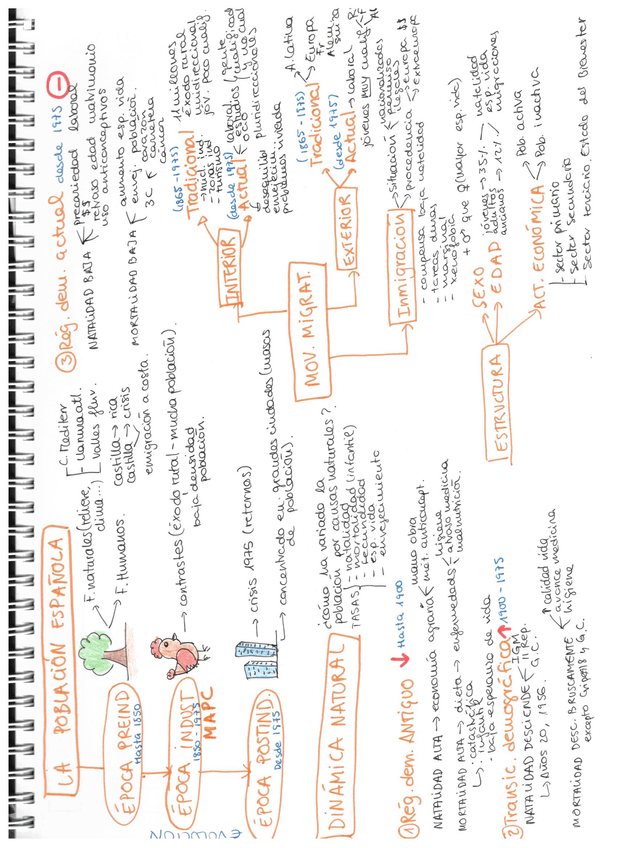 LA POBLACIÓN ESPAÑOLA
EVOLUCIÓN
ÉPOCA PREIND.
Hasta 1850
F. naturales (relieve,
clima...)
C. Mediterr
Llanura atl.
Valles fluv.
F. Humanos.
Castilla → rica
Castilla → crisis
emigración a costa.
ÉPOCA INDUST
1850-1975
MAPC
contrastes (éxodo rural - mucha población).
baja densidad
población.
ÉPOCA POSTIND.
Desde 1975
crisis 1975 (retornos)
concentrado en grandes ciudades (masas
de población).
DINÁMICA NATURAL
¿cómo ha variado la
población por causas naturales?
TASAS
= natalidad
= mortalidad (infantil)
= fecundidad
= esp. vida
= envejecimiento
① Rég. dem. ANTIGUO ↓ Hasta 1900
NATALIDAD ALTA → economía agraria
mano obra
mét. anticoncept.
MORTALIDAD ALTA → dieta → enfermedades
higiene
avance medicina
malnutrición.
↳ · catastrófica
· infantil
- baja esperanza de vida
② Transic. demográfica ↑ 1900 - 1975
NATALIDAD DESCIENDE
I GM
II Rep.
G.C.
↳ Años 20, 1956.
MORTALIDAD DESC. BRUSCAMENTE
↑ calidad vida
avance medicina
higiene
excepto Gripe 18 y G.C.
③ Rég. dem. actual desde 1975 −
NATALIDAD BAJA
precariedad laboral
$$
retraso edad matrimonio
uso anticonceptivos
MORTALIDAD BAJA
aumento esp. vida
envej. población.
3C
corazón
carretera
cáncer
MOV. MIGRAT.
INTERIOR
(1865-1975)
Tradicional
11 millones
éxodo rural
unidireccional
jóv. poco cualif.
→ nucl. ind.
→ zonas ind.
→ turismo
(desde 1975)
Actual
laboral
estudios
ocio
pluridireccionales
desequilib
envejecim
problemas vivienda
EXTERIOR
(1865-1975)
Tradicional
A. latina
Europa
Fr
Alem
Suiza
(desde 1975)
Actual → laboral
jóvenes muy cualif.
Inmigración
situación
nacionalizados
permiso
ilegales
procedencia
europa $$
extraeuropea
- compensa baja natalidad
- tareas duras
= marginal
= xenofobia
ESTRUCTURA
SEXO
+ ♂ que ♀ (mayor esp. vida)
EDAD
jóvenes
adultos → 35%
ancianos → 17%
natalidad
esp. vida
migraciones
ACT. ECONÓMICA
Pob. activa
Pob. inactiva
- sector primario
- sector secundario
sector terciario. Estado del Bienestar